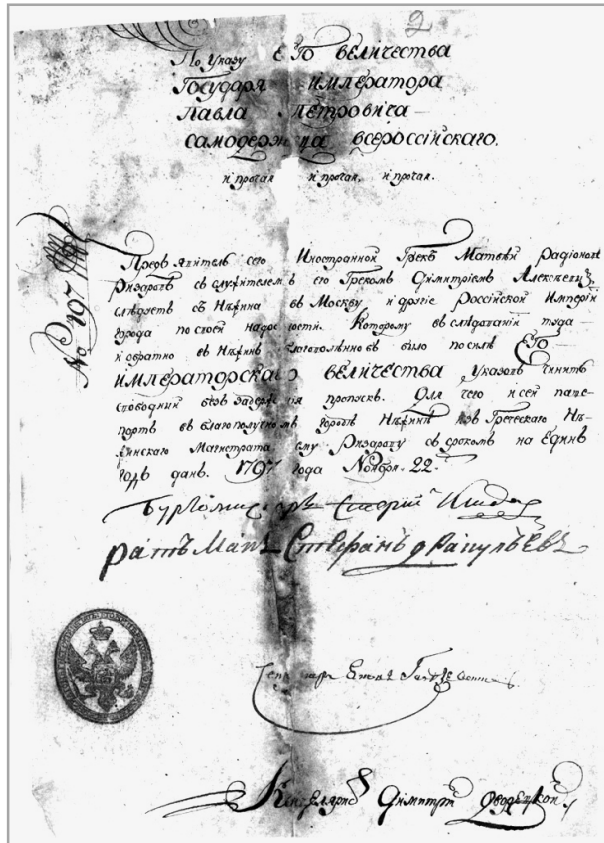 2
По Указу ЕГО ВЕЛИЧЕСТВА
Государя ИМПЕРАТОРА
ПАВЛА ПЕТРОВИЧА
САМОДЕРЖЦА ВСЕРОССІЙСКАГО.
и протчая и протчая. и протчая.
No 197
Предъявитель сего Иностранной Грекъ Матвѣй Радіоновъ
Ризаровъ съ служителемъ его Грекомъ Димитріемъ
слѣдуетъ съ Нѣжина въ Москву и другіе Россійской Имперіи
города по своей надобности. Которому въ слѣдованіи туда
и обратно въ Нѣжинъ благоволѣнно бъ было по силѣ ЕГО
ИМПЕРАТОРСКАГО ВЕЛИЧЕСТВА указовъ чинить
свободный безъ задержанія пропускъ. Для чего и сей паше-
портъ въ благополучномъ городѣ Нѣжинѣ изъ Греческаго Нѣ-
жинскаго Магистрата ему Ризарову съ срокомъ на Единъ
годъ данъ. 1797 года Ноября 22.
Бургомистръ
ратъманъ Стефанъ
Канцеляристъ Димитрій